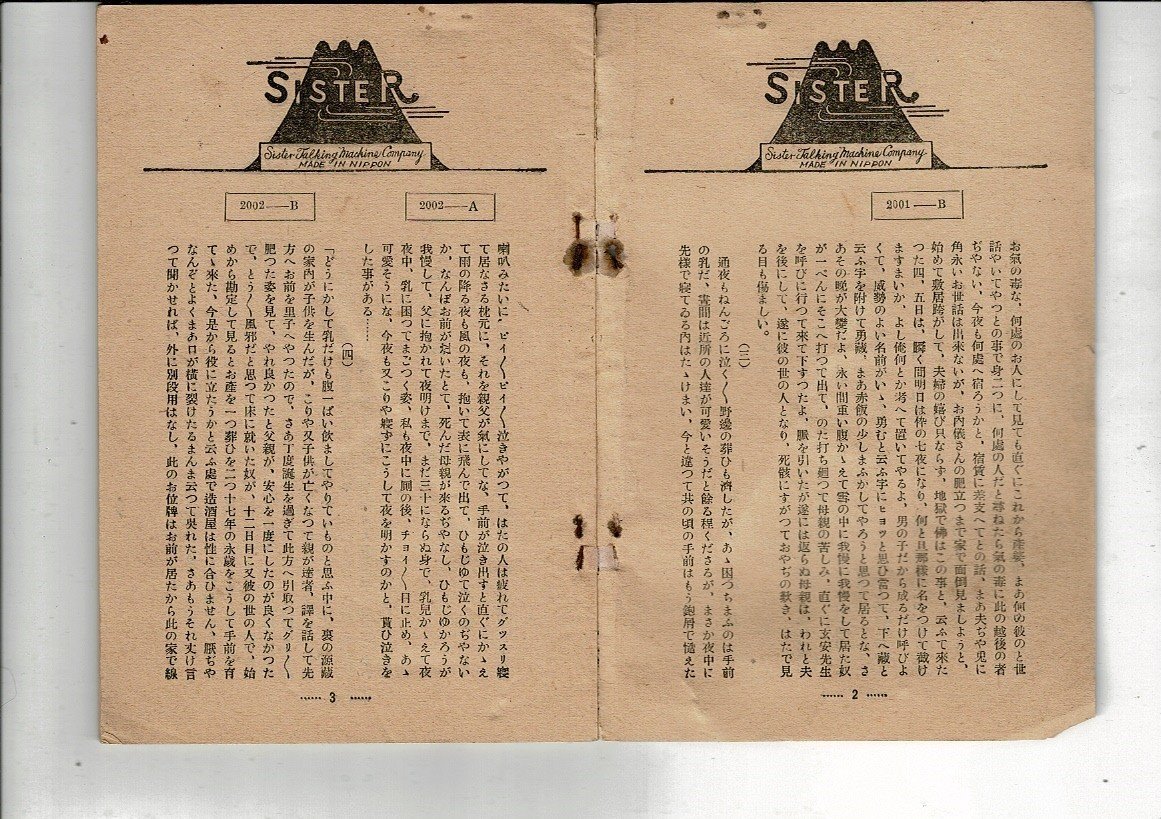 SISTER
Sister Talking Machine Company
MADE IN NIPPON
2001——B
お氣の毒な、何處のお人にして見ても直ぐにこれから産婆、まあ何の彼のと世
話やいてやつとの事で身二つに、何處の人だと尋ねたら氣の毒に此の越後の者
ぢやない、今夜も何處へ宿ろうかと、宿賃に差支へてとの話、まあ夫ぢや兎に
角永いお世話は出來ないが、お內儀さんの肥立つまで家で面倒見ましようと、
始めて敷居跨がして、夫婦の嬉び只ならず、地獄で佛はこの事と、云ふて來た
つた四、五日は、瞬く間明日は忰の七夜になり、何と旦那樣に名をつけて戴け
ますまいか、よし俺何とか考へて置いてやるよ、男の子だから成るだけ呼びよ
くて、威勢のよい名前がいゝ、勇むと云ふ字にヒヨツと思ひ當つて、下へ藏と
云ふ字を附けて勇藏、まあ赤飯の少しまふかしてやろうと思つて居るとな、さ
あその晩が大變だよ、永い間重い腹かゝえて雪の中に我慢に我慢をして居た奴
が一ぺんにそこへ打つて出て、のた打ち廻つて母親の苦しみ、直ぐに玄安先生
を呼びに行つて來て下すつたよ、脈を引いたが遂には返らぬ母親は、われと夫
を後にして、遂に彼の世の人となり、死骸にすがつておやぢの歎き、はたで見
る目も傷ましい。
(三)
通夜もねんごろに泣く〱野邊の葬ひも濟したが、あゝ困つちまふのは手前
の乳だ、晝間は近所の人達が可愛いそうだと餘る程くださるが、まさか夜中に
先樣で寢てゐる內はたゝけまい、今と違つて其の頃の手前はもう鮑屑で憶えた
…… 2 ……
SISTER
Sister Talking Machine Company
MADE IN NIPPON
2002——A
喇叭みたいに、ピイ〱ピイ〱泣きやがつて、はたの人は疲れてグツスリ寢
て居なさる枕元に、それを親父が氣にしてな、手前が泣き出すと直ぐにかゝえ
て雨の降る夜も風の夜も、抱いて表に飛んで出て、ひもじゆて泣くのぢやない
か、なんぼお前が泣いたとて、死んだ母親が來るぢやなし、ひもじゆかろうが
我慢して、父に抱かれて夜明けまで、まだ三十にならぬ身で、乳兒かゝえて夜
夜中、乳に困つてまごつく姿、私も夜中に厠の後、チヨイ〱目に止め、あゝ
可愛そうにな、今夜も又こりや寢ずにこうして夜を明かすのかと、貰ひ泣きを
した事がある……
2002——B
(四)
「どうにかして乳だけも腹一ぱい飮ましてやりていものと思ふ中に、裏の源藏
の家內が子供を生んだが、こりや又子供が亡くなつて親が達者、譯を話して先
方へお前を里子へやつたので、さあ丁度誕生を過ぎて此方へ引取つてグリ〱
肥つた姿を見て、やれ良かつたと父親が、安心を一度にしたのが良くなかつた
で、とう〱風邪だと思つて床に就いた奴が、十二日目に又彼の世の人で、始
めから勘定して見るとお產を一つ葬ひを二つ十七年の永歲をこうして手前を育
てゝ來た、今是から役に立たうかと云ふ處で造酒屋は性に合ひません、厭ぢや
なんぞとよくまあ口が橫に裂けたるまんま云つて吳れた、さあもうそれ丈け言
つて聞かせれば、外に別段用はなし、此のお位牌はお前が居たから此の家で線
…… 3 ……